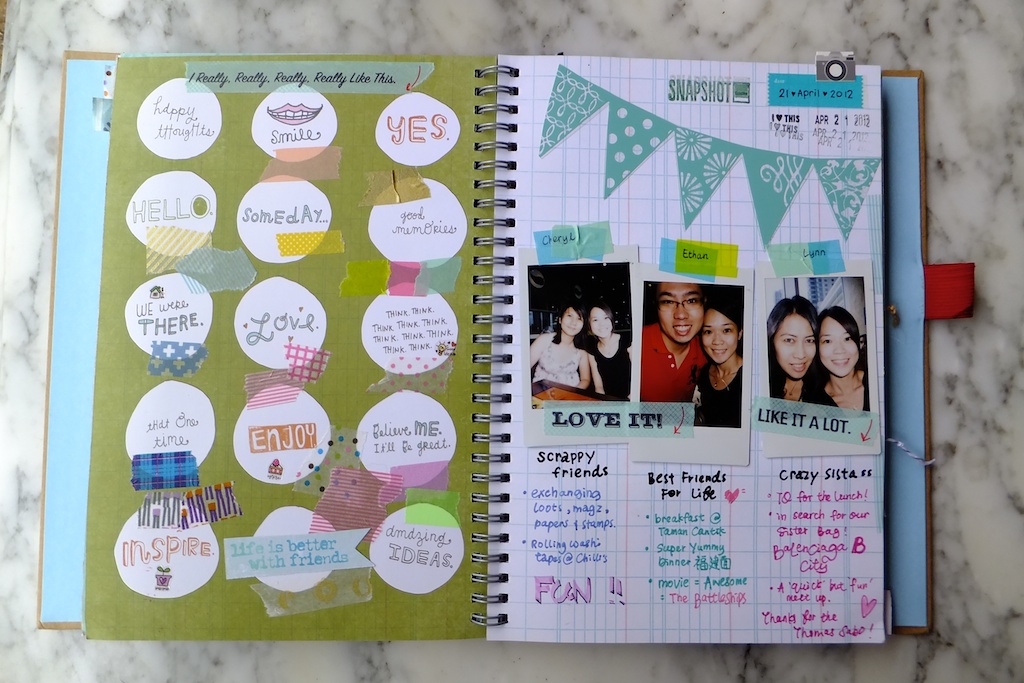 I Really. Really. Really. Really Like This.
happy
thoughts
smile
YES.
HELLO.
Someday...
good
memories
WE WERE
THERE.
Love.
THINK. THINK.
THINK. THINK. THINK.
THINK. THINK. THINK.
THINK. THINK. THINK.
THINK. THINK.
that one
time
ENJOY
Believe ME.
It'll be great.
INSPIRE.
life is better
with friends
amazing
IDEAS.
SNAPSHOT
date
21 ♥ April ♥ 2012
I ♥ THIS APR 21 2012
I ♥ THIS APR 21 2012
Cheryl
Ethan
Lynn
LOVE IT!
LIKE IT A LOT.
Scrappy
friends
• exchanging
loots, magz,
papers & stamps.
• Rolling washi
tapes @ Chili's
FUN !!
Best Friends
For Life
• breakfast @
Taman Cantik
• Super Yummy
Dinner 福建面
• movie = Awesome
= The Battleships
Crazy Sistass
• TQ for the lunch!
• in search for our
Sister Bag!
Balenciaga B
City
• A 'quick' but fun'
meet up.
Thanks for the
Thomas Sabo!